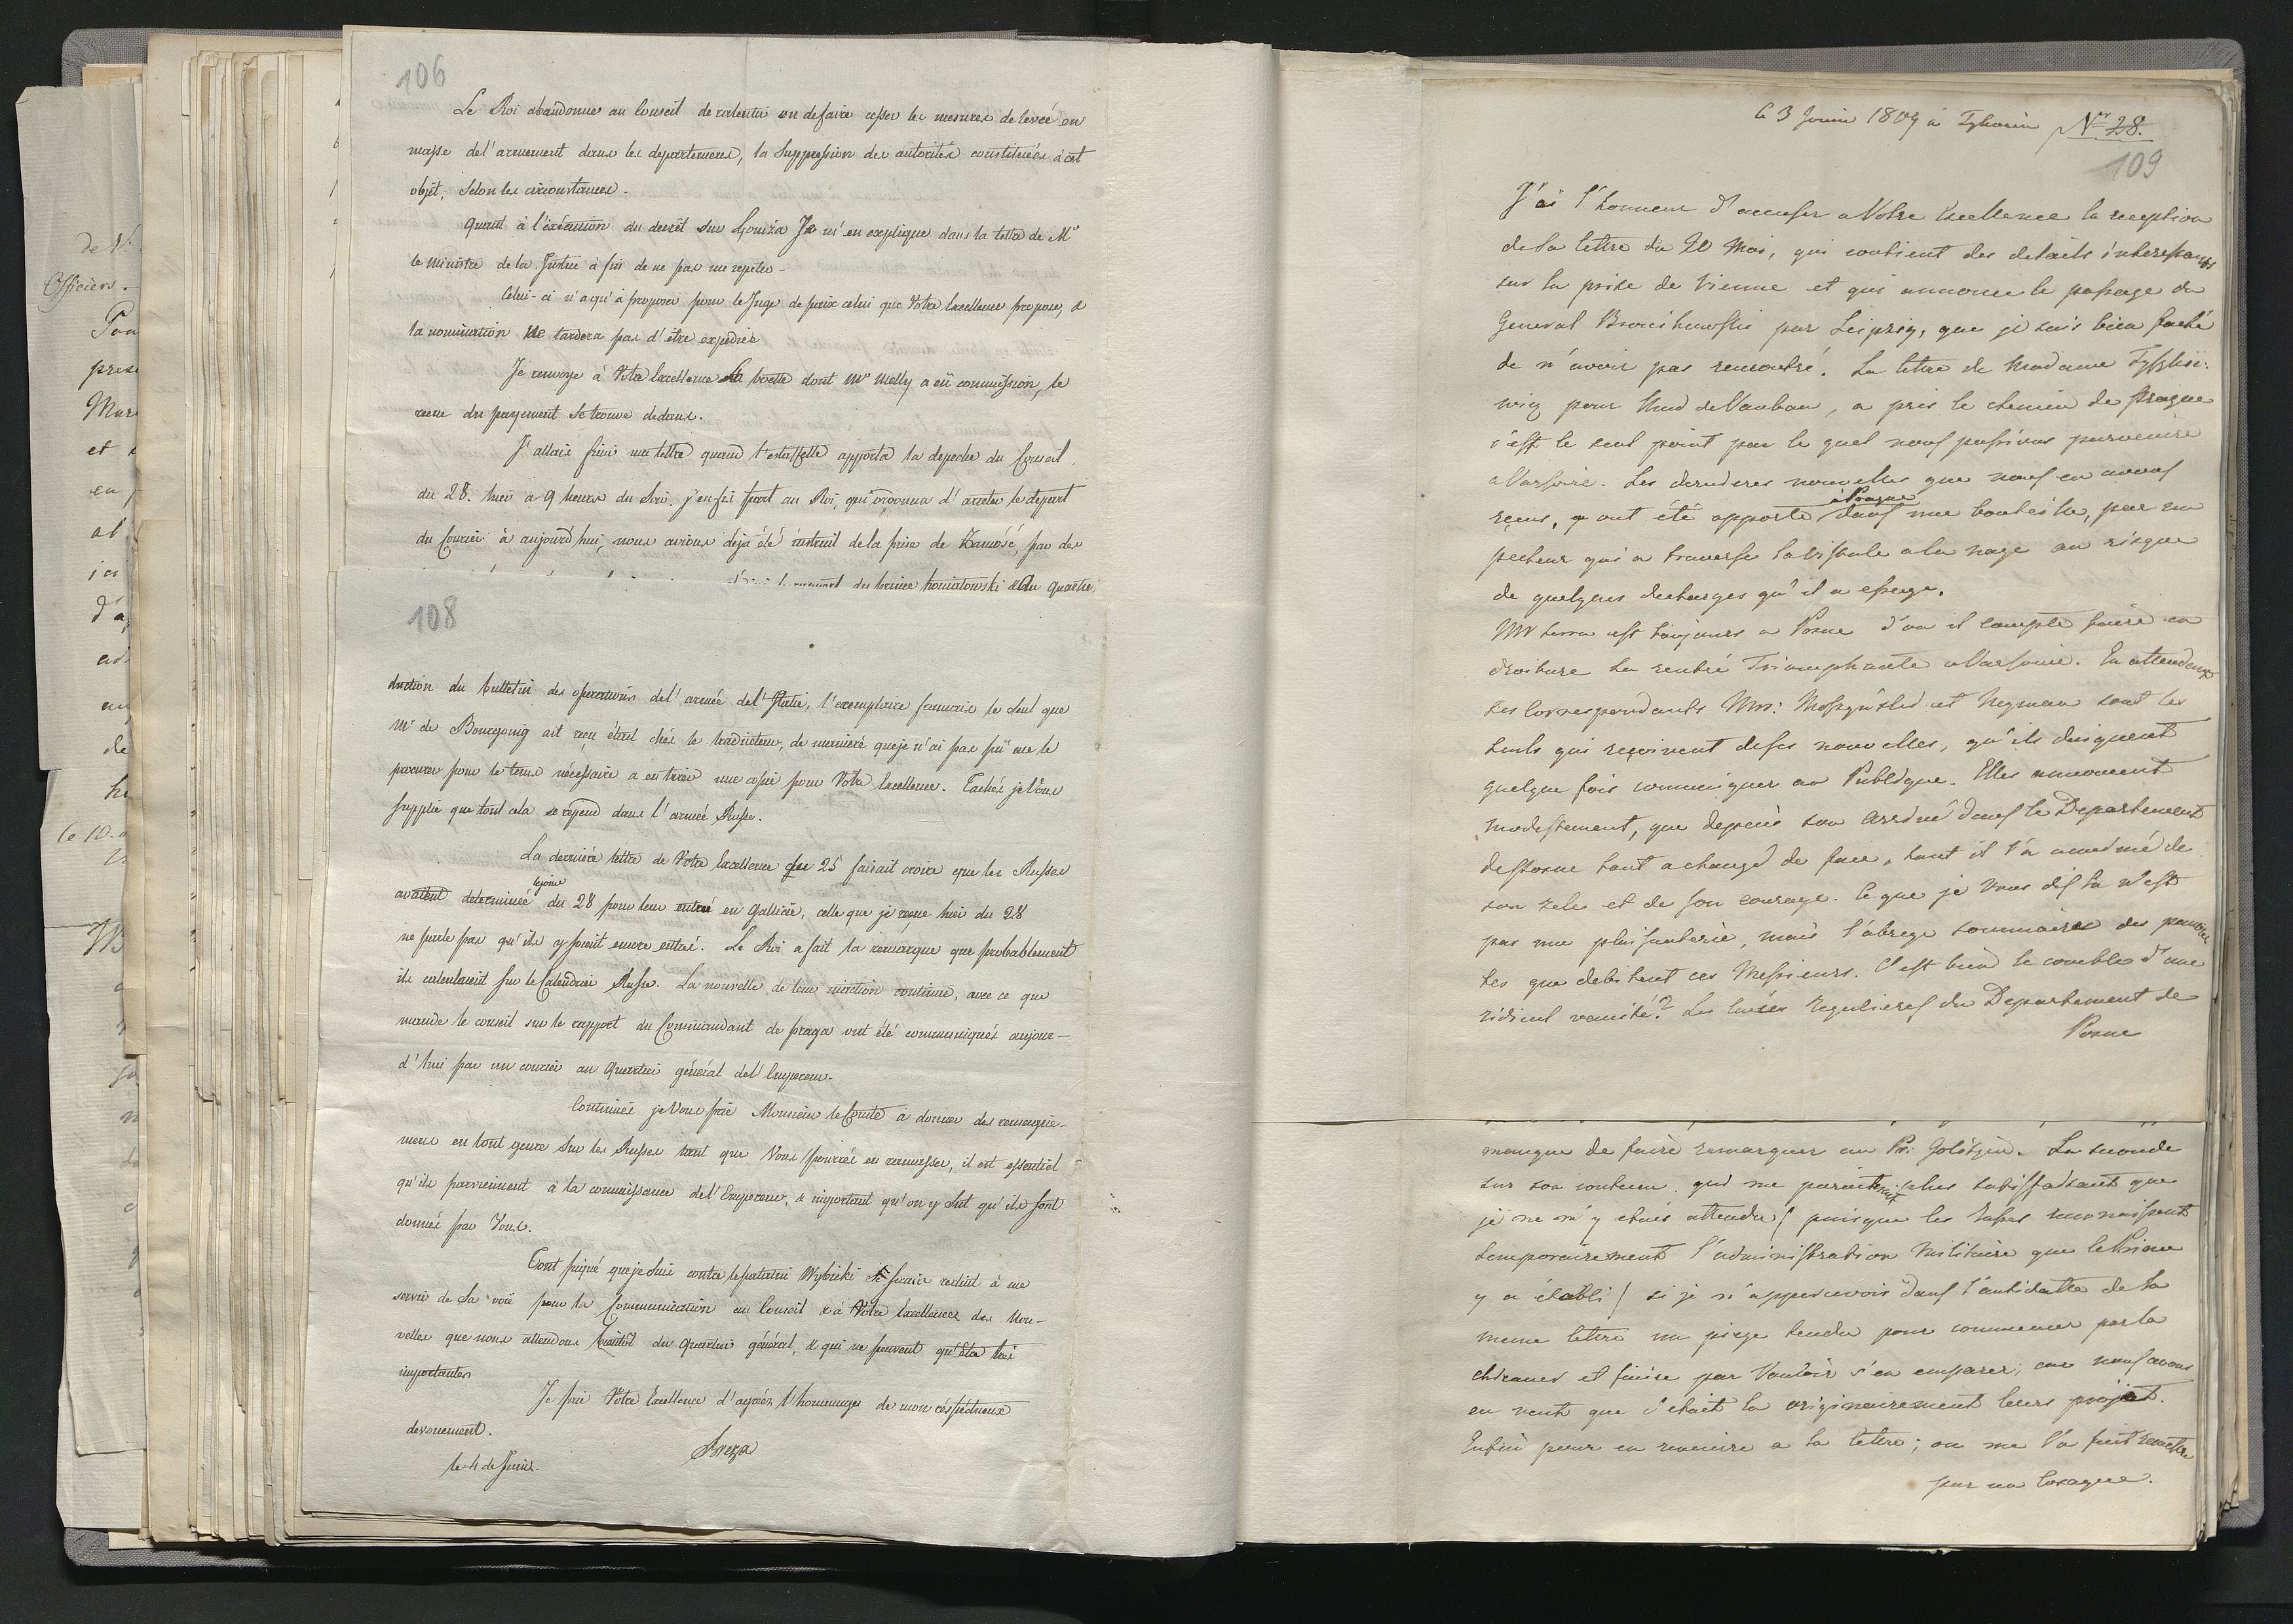 106
Le Roi abandonne au Conseil de ralentir ou de faire cesser les mesures de levée en
masse de l'armement dans les departemens, la suppression des autorités constituées à cet
objet, selon les circonstances.
Quant à l'exécution du decrèt sur Gouiza Je m'en explique dans la lettre de Mr
le Ministre de la Justice à fin de ne pas me repeter.
Celui-ci n'a qu'à proposer pour le Juge de paix celui que Votre Excellence propose, &
la nomination ne tardera pas d'être expediée
Je renvoye à Votre Excellence la boette dont Mr Melly a eü commission, le
recu du payement se trouve dedans.
J'allais finir ma lettre quand l'estaffette apporta la depeche du Conseil
du 28. hier à 9 heures du Soir. j'en fis part au Roi, qui ordonna d'arreter le depart
du Courier à aujourd'hui, nous avions déja été instruit de la prise de Zamość, par des
du Prince Poniatowski & du Quartier
108
duction du bulletin des operations de l'armée de l'Italie, l'exemplaire francais le seul que
Mr de Bourgoing ait reçu étant chés le traducteur, de manière que je n'ai pas pü me le
procurer pour le tems nécessaire a en tirer une copie pour Votre Excellence. Tachés je Vous
supplie que tout cela se repend dans l'armée Russe.
La dernière lettre de Votre Excellence du 25 faisait croire que les Russes
avaient determinée le jour du 28 pour leur entrée en Gallicie, celle que je reçus hier du 28
ne parle pas qu'ils y soient encore entrés. Le Roi a fait la remarque que probablement
ils calculaient sur le Calendrier Russe. La nouvelle de leur inaction continue, avec ce que
mande le conseil sur le rapport du Commandant de Praga ont été communiqués aujour-
d'hui par un courier au Quartier général de l'Empereur.
Continués je Vous prie Monsieur le Comte à donner des renseigne-
mens en tout genre sur les Russes tant que Vous pourrés en ramasser, il est essentiel
qu'ils parviennent à la connaissance de l'Empereur, & important qu'on y sut qu'ils sont
donnés par Vous.
Tout piqué que je suis contre le palatin Wybicki je serais reduit à me
servir de sa voie pour la Communication au Conseil & à Votre Excellence des Nou-
velles que nous attendons bientôt du Quartier général, & qui ne peuvent qu'être très
importantes
Je prie Votre Excellence d'agréer l'hommage de mon réspectueux
devouement.
Breza
le 4 de Juin.
Le 3 Juin 1809 à Tykocin No 28.
109
J'ai l'honneur d'accuser a Votre Excellence la reception
de sa lettre du 20 Mai, qui contient des details interessants
sur la prise de Vienne et qui annonce le passage du
General Bronikowski par Leipzig, que je suis bien faché
de n'avoir pas rencontré. La lettre de Madame Tyszkie-
wicz pour Mad de Vauban, a pris le chemin de Prague
c'est le seul point par le quel nous puissions parvenire
a Varsovie. Les dernieres nouvelles que nous en avons
reçus, y ont été apporté à Prague dans une bouteille, par un
pecheur qui a traversé la Vistule a la nage au risque
de quelques decharges qu'il a essuye.
Mr est toujours a Posne d'ou il compte faire en
droiture sa rentré Triomphante a Varsovie. En attendant
ses Correspondants Mrs: et Neyman sont les
seuls qui reçoivent de ses nouvelles, qu'ils daignent
quelque fois communiquer au Publique. Elles annoncent
modestement, que depuis son arrivé dans le Departement
de Posne tout a changé de face, tant il l'a animé de
son zele et de son courage. Ce que je Vous dis la n'est
pas une plaisanterie, mais l'abrege sommaire des
que debitent ces Messieurs. C'est bien le comble d'une
ridicul vanité? Les levées Regulieres du Departement de
Posne
manque de faire remarquer au Pr: Golitzin. La seconde
sur son contenu qui me paroit plus satisfaisant que
je ne m'y etois attendu / puisque les Russes reconnaissent
temporairement l'administration Militaire que le Prince
y a établi / si je n'appercevois dans l'antidatte de la
meme lettre un piege tendu pour commencer par la
chicaner et finire par Vouloir s'en emparer; car nous avons
eu vent que c'etait la originairement leurs projet.
Enfin pour en revenire a la lettre; on me l'a fait remettre
par un Cosaque.